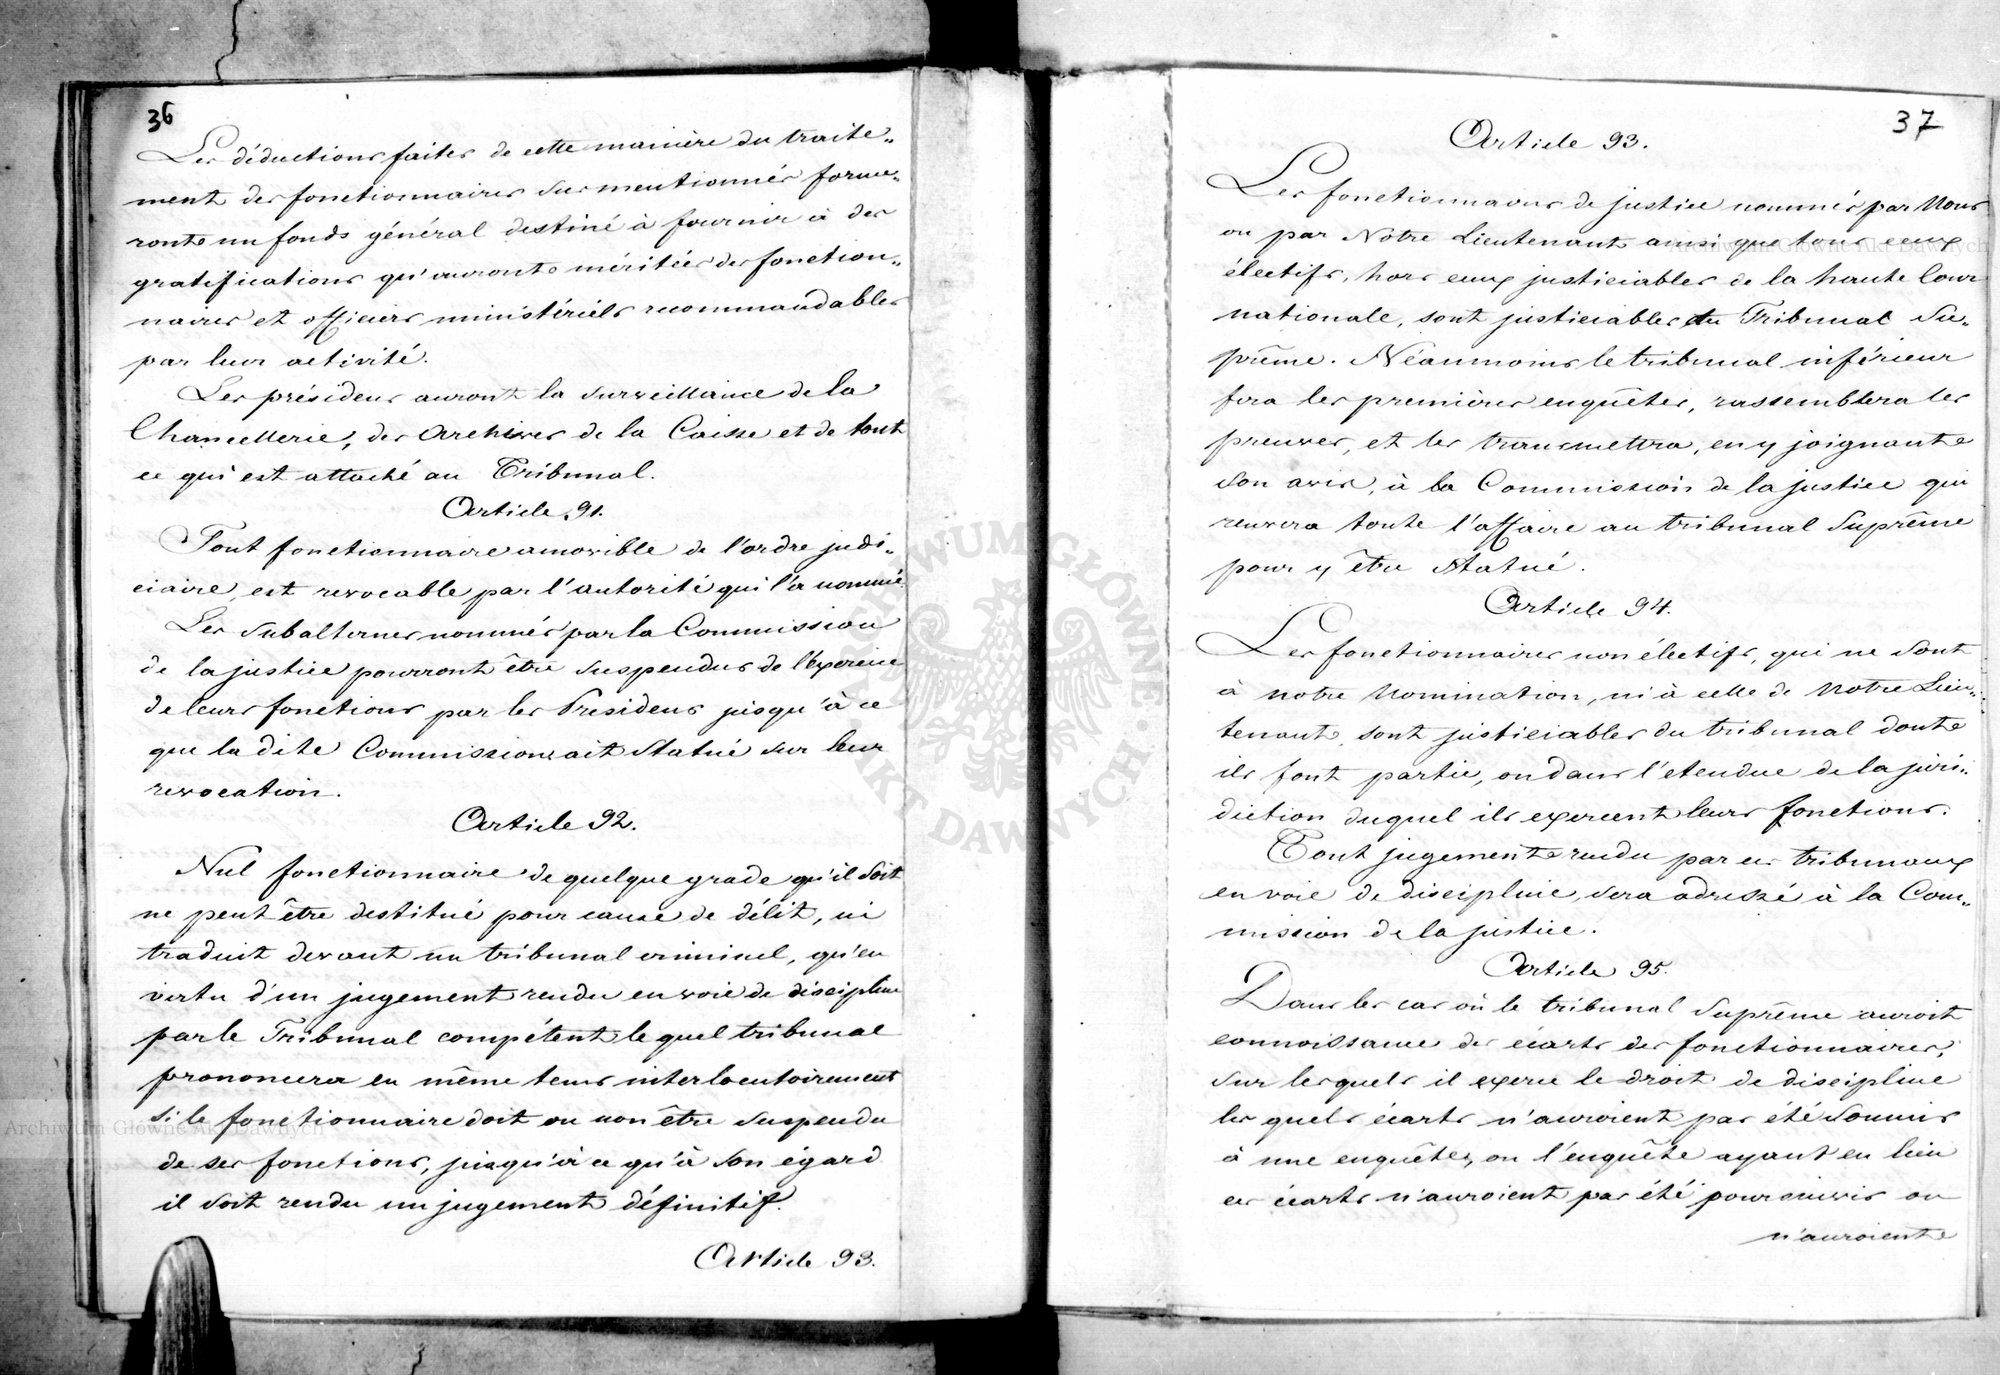 36
Les déductions faites de cette manière du traite„
ment des fonctionnaires susmentionnés forme„
ront un fonds général destiné à fournir à des
gratifications qu'auront méritées des fonction„
naires et officiers ministériels recommandables
par leur activité.
Les présidens auront la surveillance de la
Chancellerie, des Archives de la Caisse et de tout
ce qui est attaché au Tribunal.
Article 91.
Tout fonctionnaire amovible de l'ordre judi„
ciaire, est revocable par l'autorité qui l'a nommé.
Les subalternes nommés par la Commission
de la justice pourront être suspendus de l'exercice
de leurs fonctions par les Presidens jusqu'à ce
que la dite Commission ait statué sur leur
revocation.
Article 92.
Nul fonctionnaire de quelque grade qu'il soit
ne peut être destitué pour cause de délit, ni
traduit devant un tribunal criminel, qu'en
vertu d'un jugement rendu en voie de discipline
par le Tribunal compétent le quel tribunal
prononcera en même tems interlocutoirement
si le fonctionnaire doit ou non être suspendu
de ses fonctions, jusqu'à ce qu'à son égard
il soit rendu un jugement définitif.
Article 93.
37
Article 93.
Les fonctionnaires de justice nommés par Nous
ou par Notre Lieutenant ainsi que tous ceux
électifs, hors ceux justiciables de la haute Cour
nationale, sont justiciables du Tribunal Su„
prême. Néanmoins le tribunal inférieur
fera les premières enquêtes, rassemblera les
preuves, et les transmettra, en y joignant
son avis, à la Commission de la justice qui
renverra toute l'affaire au tribunal Suprême
pour y être statué.
Article 94.
Les fonctionnaires non électifs, qui ne sont
à notre Nomination, ni à celle de Notre Lieu„
tenant, sont justiciables du tribunal dont
ils font partie, ou dans l'etendue de la juri„
diction duquel ils exercent leurs fonctions.
Tout jugement rendu par ces tribunaux
en voie de discipline, sera adressé à la Com„
mission de la justice.
Article 95.
Dans les cas où le tribunal Suprême auroit
connoissance des écarts des fonctionnaires,
sur lesquels il exerce le droit de discipline
les quels écarts n'auroient pas été soumis
à une enquête, ou l'enquête ayant eu lieu
ces écarts n'auroient pas été poursuivis ou
n'auroient
ARCHIWUM GŁÓWNE AKT DAWNYCH
Archiwum Główne Akt Dawnych
Archiwum Główne Akt Dawnych